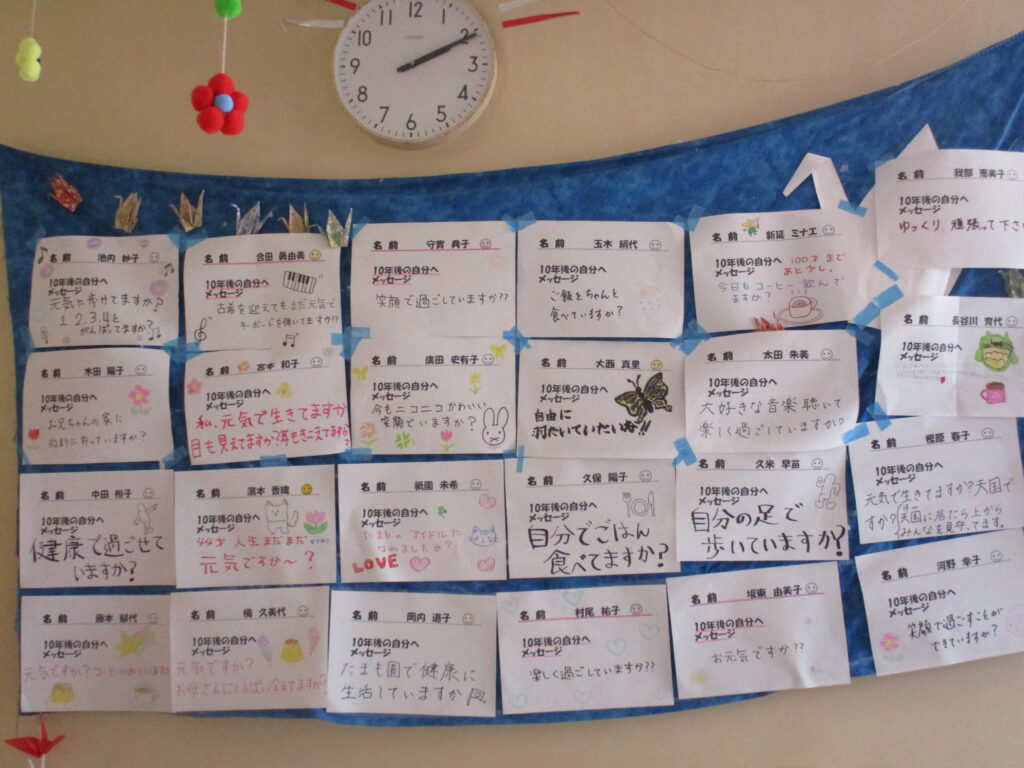 11 12 1
10 2
9 3
8 4
7 6 5
CITIZEN
名前 池内 妙子
10年後の自分へ
メッセージ
元気に歩けてますか?
1.2.3.4と
がんばってますか?
名前 合田 眞由美
10年後の自分へ
メッセージ
古希を迎えてもまだ元気で
キーボードを弾いてますか??
名前 守實 典子
10年後の自分へ
メッセージ
笑顔で過ごしていますか??
名前 玉木 絹代
10年後の自分へ
メッセージ
ご飯をちゃんと
食べていますか?
名前 新延 ミナエ
10年後の自分へ
メッセージ
100才まで
あと少し。
今日もコーヒー飲んで
ますか?
名前 我部 恵美子
10年後の自分へ
メッセージ
ゆっくり、頑張って下さい
名前 木田 陽子
10年後の自分へ
メッセージ
お兄ちゃんの家に
行っていますか?
名前 宮本 和子
10年後の自分へ
メッセージ
私、元気で生きてますか
目も見えてますか?耳もきこえてますか?
名前 廣田 史有子
10年後の自分へ
メッセージ
今もニコニコかわいい
笑顔でいますか?
名前 大西 真里
10年後の自分へ
メッセージ
自由に
羽ばたいていたいね!!
名前 太田 朱美
10年後の自分へ
メッセージ
大好きな音楽聴いて
楽しく過ごしていますか?
名前 長谷川 育代
10年後の自分へ
メッセージ
名前 中田 裕子
10年後の自分へ
メッセージ
健康で過ごせて
いますか?
名前 濱本 香織
10年後の自分へ
メッセージ
44才 人生まだまだ
元気ですか〜?
名前 祇園 朱希
10年後の自分へ
メッセージ
たまもの アイドルに
なれましたか?
LOVE
名前 久保 陽子
10年後の自分へ
メッセージ
自分でごはん
食べてますか?
名前 久米 早苗
10年後の自分へ
メッセージ
自分の足で
歩いていますか?
名前 樫原 春子
10年後の自分へ
メッセージ
元気で生きてますか?天国で
すか?天国に居たら上から
みんなを見守ってます。
名前 藤本 郁代
10年後の自分へ
メッセージ
元気ですか?コーヒーのめていますか
名前 楠 久美代
10年後の自分へ
メッセージ
元気ですか?
お母さんにいっぱい会えてますか?
名前 岡内 道子
10年後の自分へ
メッセージ
たまも園で健康に
生活していますか
名前 村尾 祐子
10年後の自分へ
メッセージ
楽しく過ごしていますか??
名前 坂東 由美子
10年後の自分へ
メッセージ
お元気ですか??
名前 河野 幸子
10年後の自分へ
メッセージ
笑顔で過ごすことが
できていますか?